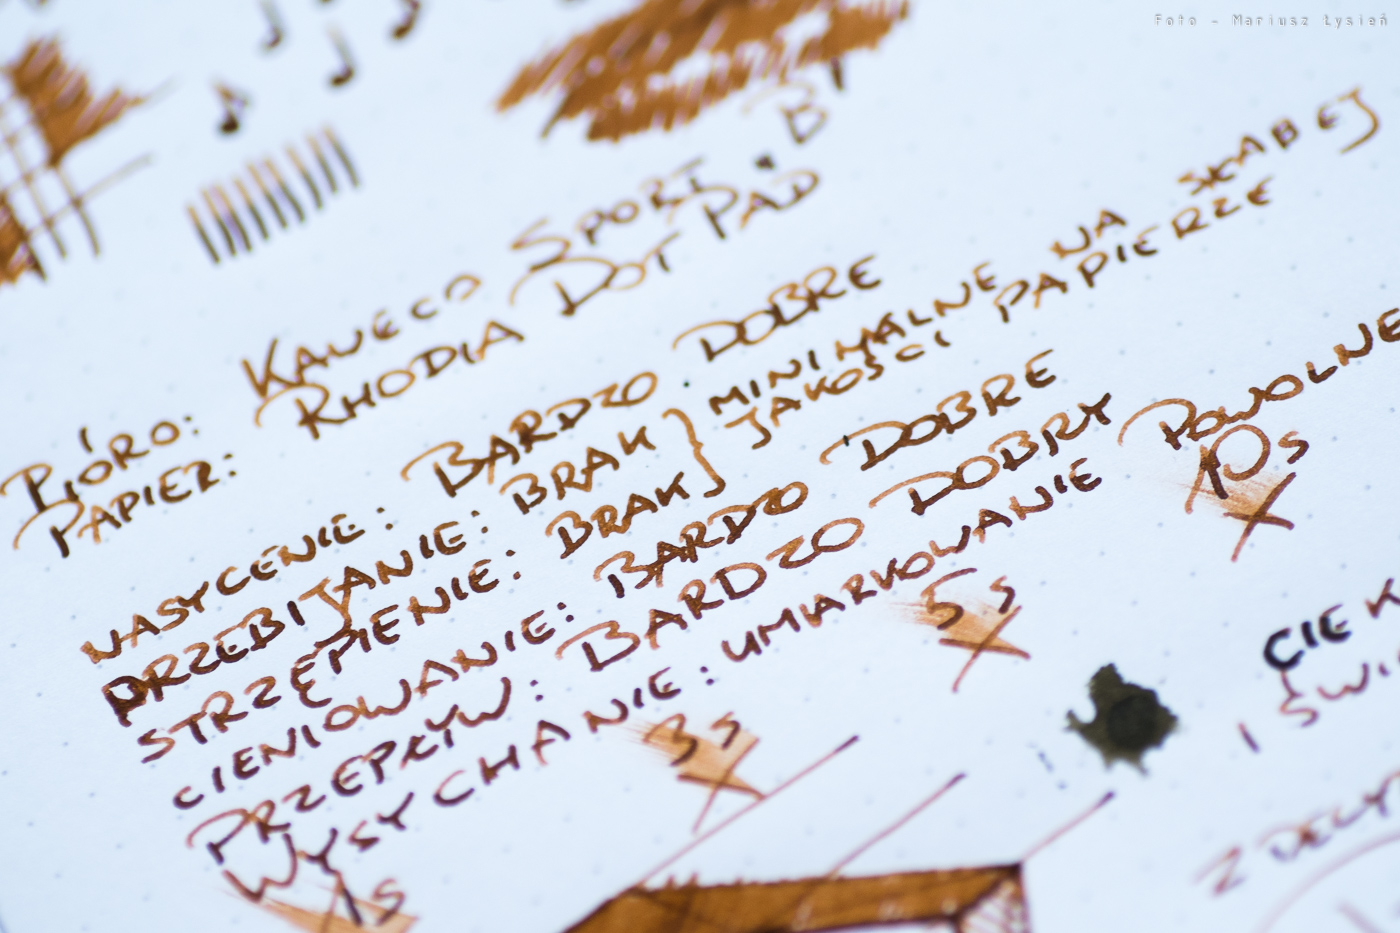 Foto - Mariusz Łysień
PIÓRO: KAWECO SPORT B
PAPIER: RHODIA DOT PAD
NASYCENIE: BARDZO DOBRE
PRZEBIJANIE: BRAK } MINIMALNE NA SŁABEJ
STRZĘPIENIE: BRAK } JAKOŚCI PAPIERZE
CIENIOWANIE: BARDZO DOBRE
PRZEPŁYW: BARDZO DOBRY
WYSYCHANIE: UMIARKOWANIE POWOLNE
1s 3s 5s 10s
CIEK
I ŚWI
Z DECY